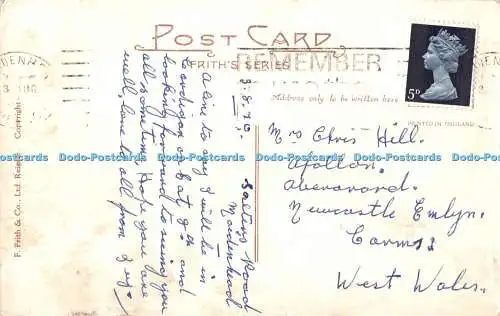 POST CARD
FRITH'S SERIES
REMEMBER
Address only to be written here
5D
PRINTED IN ENGLAND
F. Frith & Co., Ltd. Copyright
Road
Maidenhead
3.8.70
A line to say I will be in
Cardigan on Sat 8th and
looking forward to seeing you
all sometime. Hope you are
well, love to all from
Mrs Chris Hill.
Afallon.
Newcastle Emlyn.
Carms.
West Wales.
Dodo-Postcards Dodo-Postcards Dodo-Postcards Dodo-Postcards Dodo-Postcards